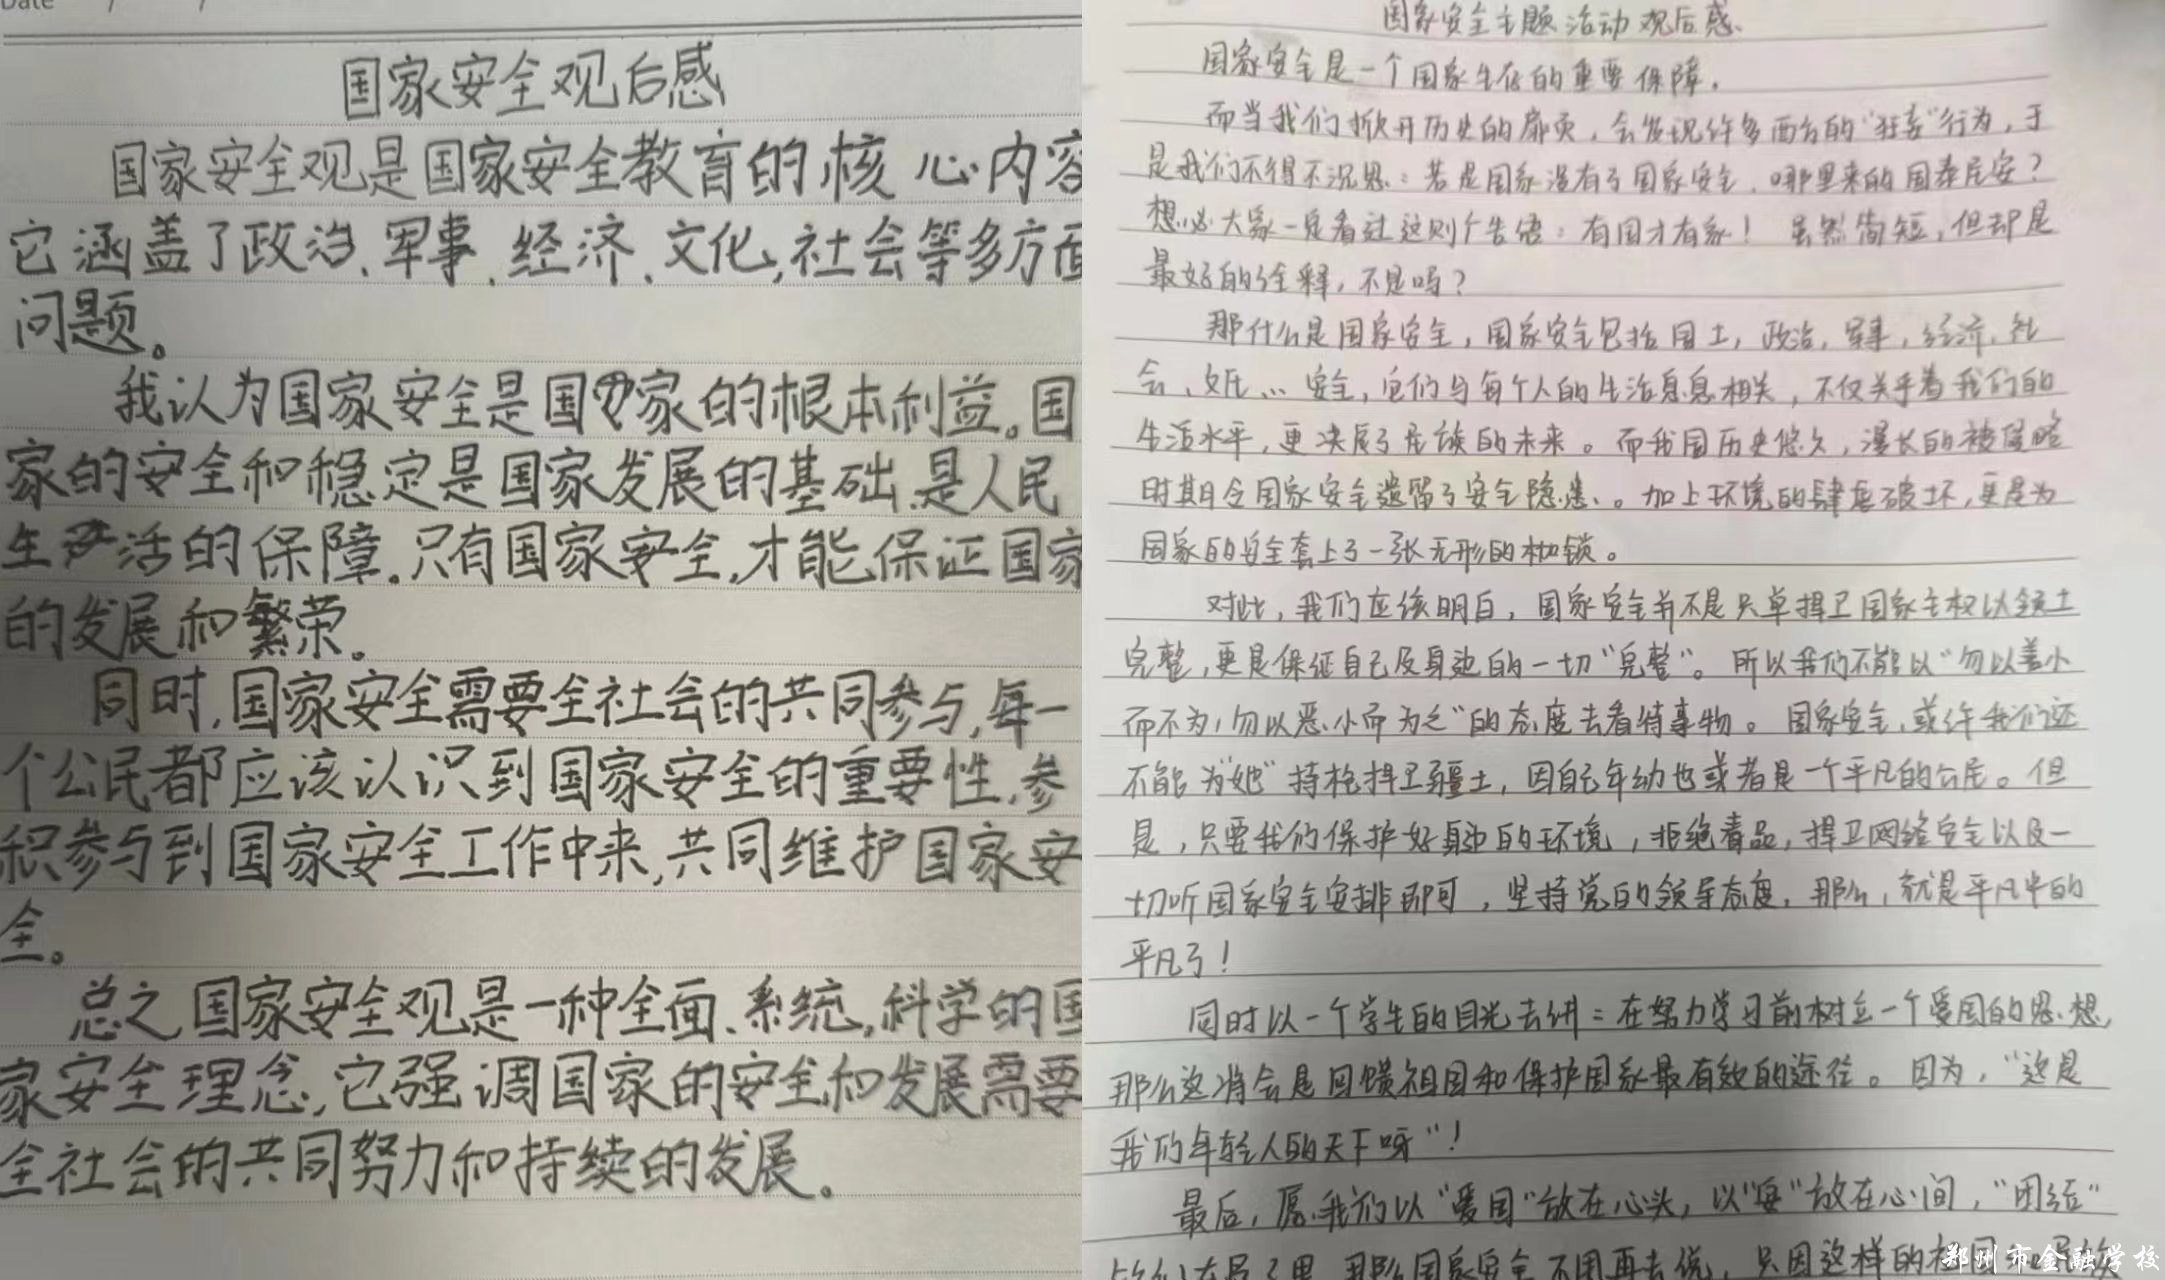 Date / /
国家安全观后感
国家安全观是国家安全教育的核心内容
它涵盖了政治、军事、经济、文化,社会等多方面
问题。
我认为国家安全是国家的根本利益。国
家的安全和稳定是国家发展的基础.是人民
生活的保障.只有国家安全,才能保证国家
的发展和繁荣。
同时,国家安全需要全社会的共同参与,每一
个公民都应该认识到国家安全的重要性.参
积参与到国家安全工作中来,共同维护国家安
全。
总之国家安全观是一种全面、系统,科学的国
家安全理念,它强调国家的安全和发展需要
全社会的共同努力和持续的发展。
国家安全主题活动观后感、
国家安全是一个国家生存的重要保障.
而当我们掀开历史的扉页,会发现许多西方的“狂妄”行为,于
是我们不得不沉思:若是国家没有了国家安全,哪里来的国泰民安?
想必大家一定看过这则广告语:有国才有家! 虽然简短,但却是
最好的诠释,不是吗?
那什么是国家安全,国家安全包括国土,政治,军事,经济,社
会、文化…安全,它们与每个人的生活息息相关,不仅关乎着我们的
生活水平,更决定了民族的未来。而我国历史悠久,漫长的被侵略
时期令国家安全遗留了安全隐患、。加上环境的肆虐破坏,更是为
国家的安全套上了一张无形的枷锁。
对此,我们应该明白,国家安全并不是只单捍卫国家主权以领土
完整,更是保证自己及身边的一切“完整”。所以我们不能以“勿以善小
而不为,勿以恶小而为之”的态度去看待事物。国家安全,或许我们还
不能为“她”持枪捍卫疆土,因自己年幼也或者是一个平凡的公民。但
是,只要我们保护好身边的环境,拒绝毒品,捍卫网络安全以及一
切听国家安全安排即可,坚持党的领导态度,那么,就是平凡中的
平凡了!
同时以一个学生的目光去讲:在努力学习前树立一个爱国的思想,
那么这将会是回馈祖国和保护国家最有效的途径。因为,“这是
我们年轻人的天下呀”!
最后,愿我们以“爱国”放在心头,以“安”放在心间,“团结”
那么国家安全不用再去说,只因这样的祖国
郑州市金融学校